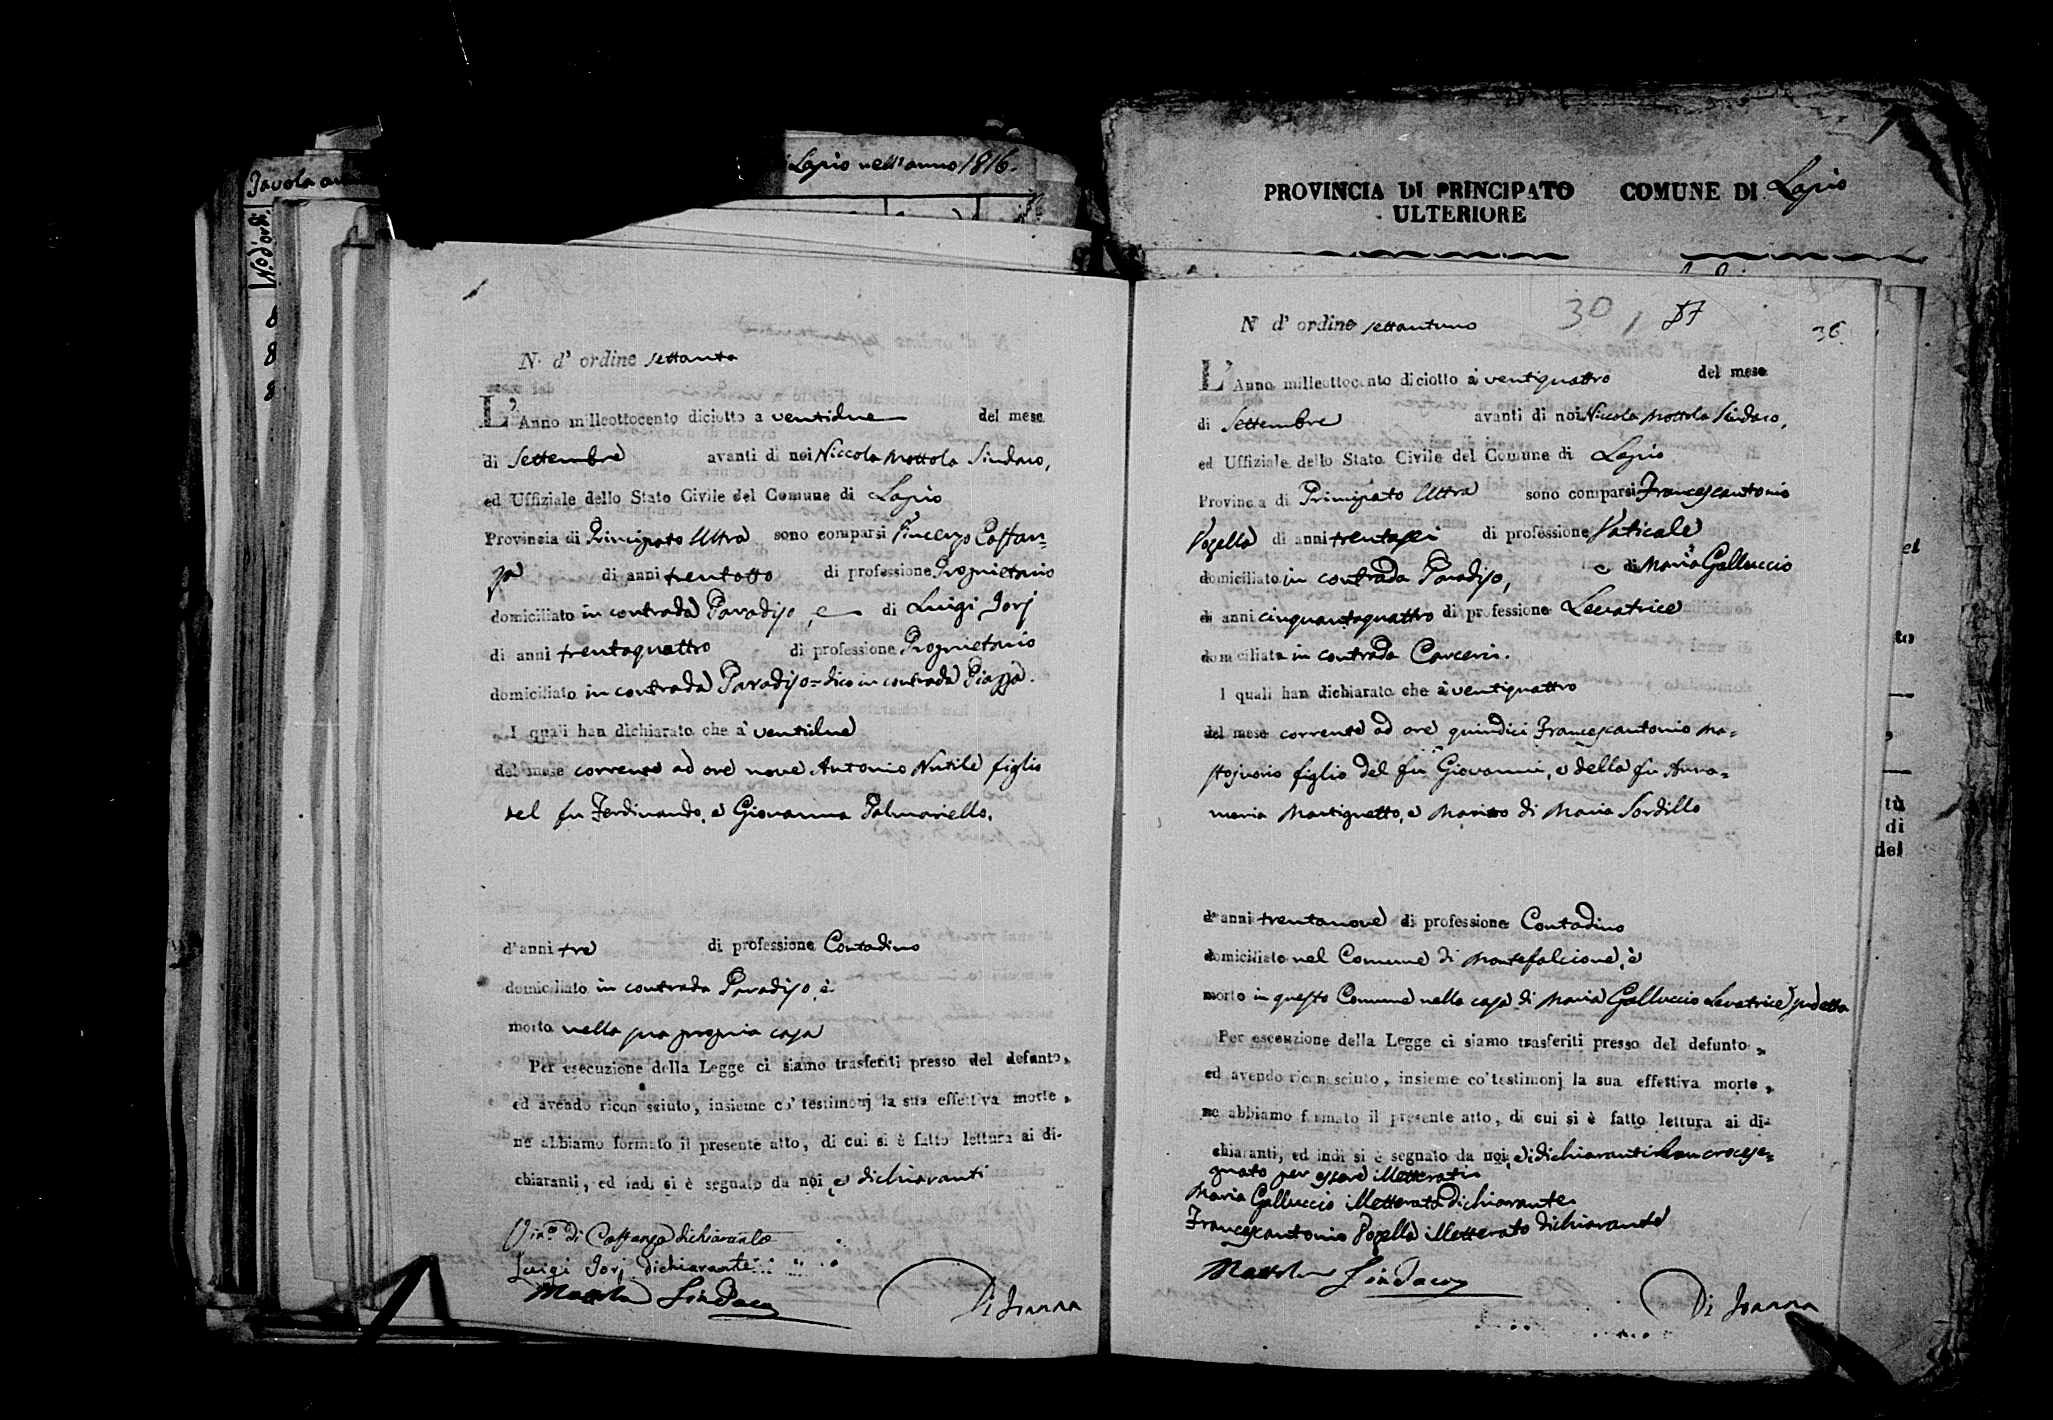 Lapio nell'anno 1816.
Tavola
N.o d'ord.
8
8
8
PROVINCIA DI PRINCIPATO
ULTERIORE
COMUNE DI Lapio
N. d' ordine settanta
L'Anno milleottocento diciotto a ventidue del mese
di Settembre avanti di noi Niccola Mottola Sindaco,
ed Uffiziale dello Stato Civile del Comune di Lapio
Provincia di Principato Ultra sono comparsi Vincenzo Costan=
zo di anni trentotto di professione Proprietario
domiciliato in contrada Paradiso, e di Luigi Iorj
di anni trentaquattro di professione Proprietario
domiciliato in contrada Paradiso = dico in contrada Piazza.
I quali han dichiarato che a' ventidue
del mese corrente ad ore nove Antonio Nutile figlio
del fu Ferdinando, e Giovanna Palmariello.
d'anni tre di professione Contadino
domiciliato in contrada Paradiso, è
morto nella sua propria casa
Per esecuzione della Legge ci siamo trasferiti presso del defunto,
ed avendo riconosciuto, insieme co' testimonj la sua effettiva morte,
ne abbiamo formato il presente atto, di cui si è fatto lettura ai di-
chiaranti, ed indi si è segnato da noi, e dichiaranti
dichiarante
Luigi Iorj dichiarante
Mottola Sindaco
Di Ioanna
30
87
36
N d' ordine settantuno
L'Anno milleottocento diciotto a ventiquattro del mese
di Settembre avanti di noi Niccola Mottola Sindaco,
ed Uffiziale dello Stato Civile del Comune di Lapio
Provincia di Principato Ultra sono comparsi Francescantonio
Vozella di anni trentasei di professione Vaticale
domiciliato in contrada Paradiso, e di Maria Galluccio
di anni cinquantaquattro di professione Levatrice
domiciliata in contrada Carceri.
I quali han dichiarato che a ventiquattro
del mese corrente ad ore quindici Francescantonio Ma=
stojuorio figlio del fu Giovanni, e della fu Anna=
maria Martignetto, e Marito di Maria Sordillo
d'anni trentanove di professione Contadino
domiciliato nel Comune di Montefalcione, è
morto in questo Comune nella casa di Maria Galluccio Levatrice sudetta
Per esecuzione della Legge ci siamo trasferiti presso del defunto,
ed avendo riconosciuto, insieme co' testimonj la sua effettiva morte,
ne abbiamo formato il presente atto, di cui si è fatto lettura ai di-
chiaranti, ed indi si è segnato da noi, e i dichiaranti han crocese=
gnato per essere illetterati
Maria Galluccio illetterata dichiarante
Francescantonio Vozella illetterato dichiarante
Mottola Sindaco
Di Ioanna
del